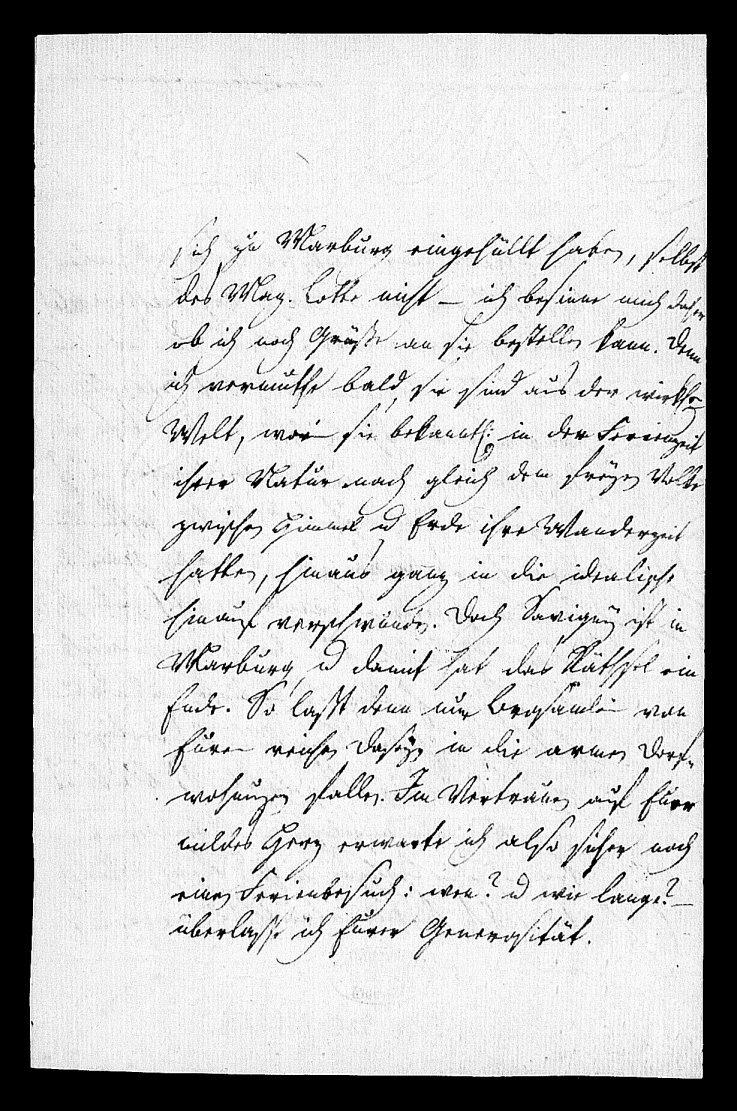 sich zu Marburg eingehüllt haben, selbst
des Mag. Lotte nicht – ich besinne mich daher
ob ich noch Grüße an sie bestellen kann. Denn
ich vermuthe bald, sie sind aus der
Welt, worin sie bekanntl: in der Ferienzeit
ihrer Natur nach gleich dem Volke
zwischen Himmel u Erde ihre Wanderzeit
hatten, hinaus ganz in die idealische
hinauf verschwunden. Doch Savigny ist in
Marburg, u damit hat das Räthsel ein
Ende. So laßt denn nur Brosamlein von
Eurem reichen Daseyn in die armen Dorf-
wohnungen fallen. Im Vertrauen auf Euer
mildes Herz erwarte ich also sicher noch
einen Ferienbesuch: wen? u wie lange? –
überlasse ich Eurer Generosität.